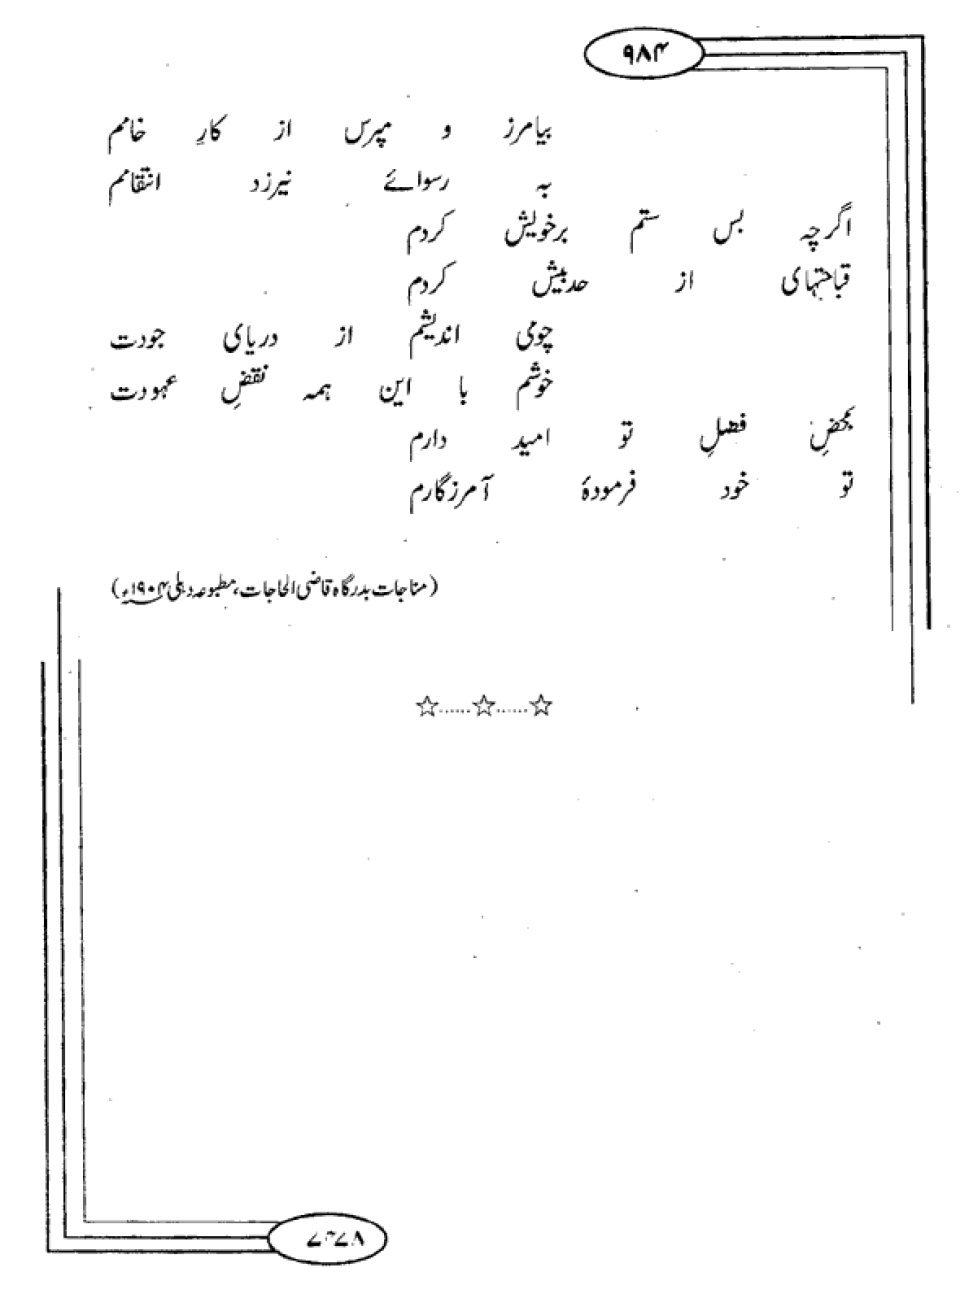 ۹۸۴
بیامرز و مپرس از کارِ خامم
بہ رسوائے نیرزد انتقامم
اگرچہ بس ستم برخویش کردم
قباحتہای از حد بیش کردم
چومی اندیشم از دریای جودت
خوشم با این ہمہ نقضِ عہودت
بمحضِ فضلِ تو امید دارم
تو خود فرمودۂ آمرزگارم
(مناجات بدرگاہ قاضی الحاجات، مطبوعہ دہلی ۱۹۰۴ء)
☆......☆......☆